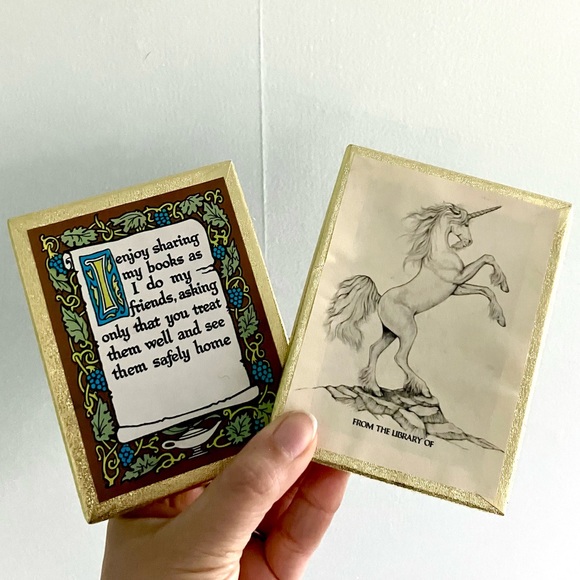 I enjoy sharing
my books as
I do my
friends, asking
only that you treat
them well and see
them safely home
FROM THE LIBRARY OF